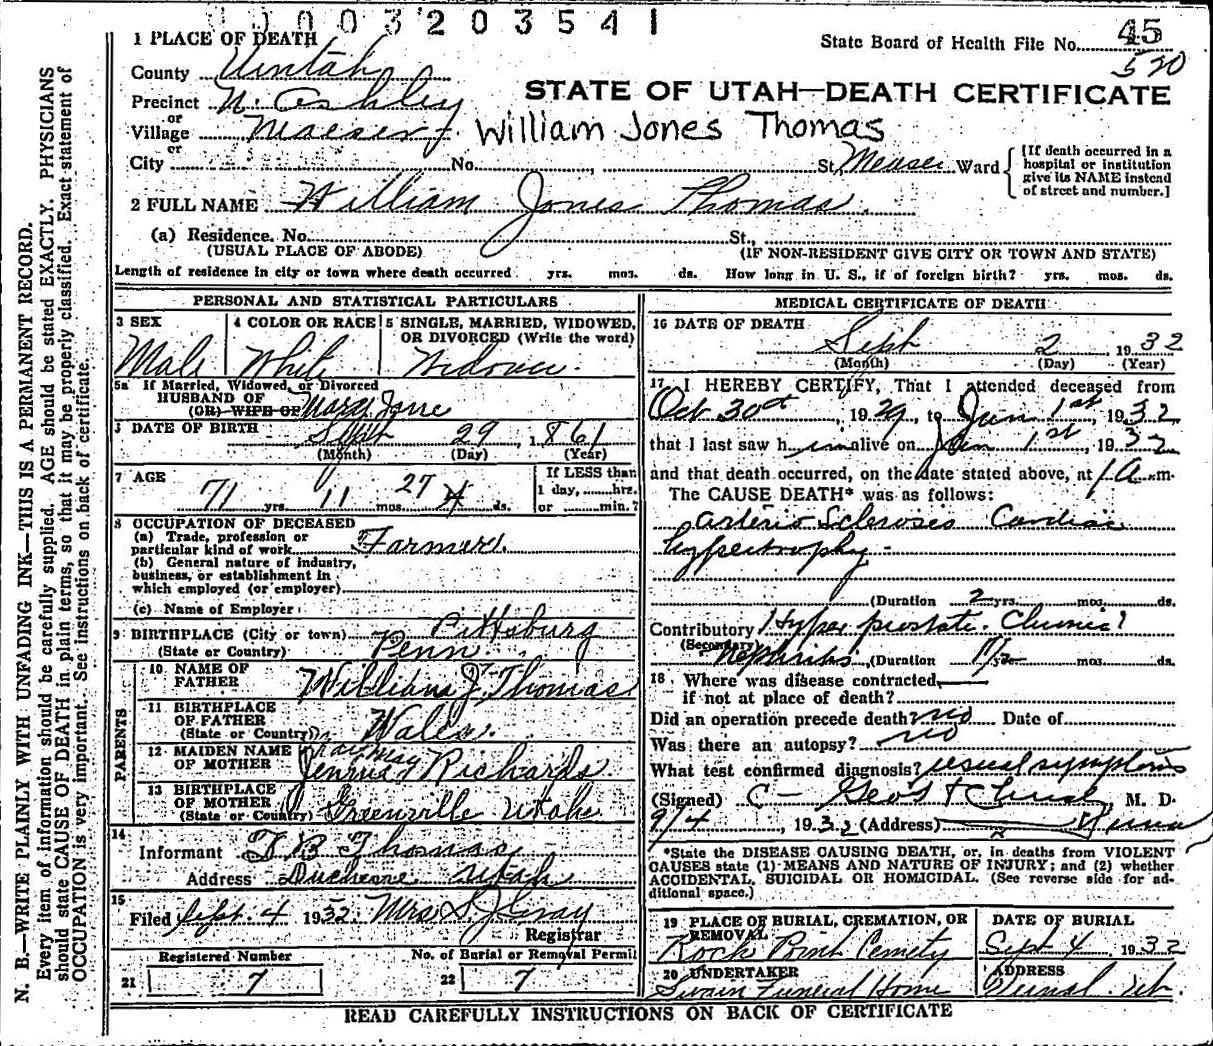 1003203541
1 PLACE OF DEATH
State Board of Health File No. 45
520
County Uintah
Precinct N. Ashley
STATE OF UTAH—DEATH CERTIFICATE
or
Village Maeser
William Jones Thomas
or
City No. St. Ward
[If death occurred in a
hospital or institution
give its NAME instead
of street and number.]
2 FULL NAME William Jones Thomas
(a) Residence. No. St.,
(USUAL PLACE OF ABODE) (IF NON-RESIDENT GIVE CITY OR TOWN AND STATE)
Length of residence in city or town where death occurred yrs. mos. ds. How long in U. S., if of foreign birth? yrs. mos. ds.
PERSONAL AND STATISTICAL PARTICULARS
3 SEX 4 COLOR OR RACE 5 SINGLE, MARRIED, WIDOWED,
OR DIVORCED (Write the word)
Male White Widower
5a If Married, Widowed, or Divorced
HUSBAND OF
(OR) WIFE OF Mary Jane
DATE OF BIRTH Sept 29, 1861
(Month) (Day) (Year)
7 AGE
If LESS than
1 day, hrs.
or min.?
71 yrs. 11 mos. 27 ds.
8 OCCUPATION OF DECEASED
(a) Trade, profession or
particular kind of work Farmer.
(b) General nature of industry,
business, or establishment in
which employed (or employer)
(c) Name of Employer
9 BIRTHPLACE (City or town) Pittsburg
(State or Country) Penn
PARENTS
10 NAME OF
FATHER William J. Thomas
11 BIRTHPLACE
OF FATHER
(State or Country) Wales.
12 MAIDEN NAME
OF MOTHER Richards
13 BIRTHPLACE
OF MOTHER
(State or Country) Greenville Utah
14
Informant T B Thomas
Address Duchesne Utah
15
Filed Sept. 4 1932 Mrs. S. J. Gray
Registrar
Registered Number No. of Burial or Removal Permit
21 7 22 7
MEDICAL CERTIFICATE OF DEATH
16 DATE OF DEATH
Sept 2 1932
(Month) (Day) (Year)
17 I HEREBY CERTIFY, That I attended deceased from
Oct 30st, 1929, to Jan 1st, 1932
that I last saw him alive on Jan 1st, 1932
and that death occurred, on the date stated above, at 1 A.m.
The CAUSE DEATH* was as follows:
Arterio Sclerosis Cardiac
hypertrophy-
(Duration 2 yrs. mos. ds.
Contributory Hyper prostate. Chronic
(Secondary) Nephritis (Duration mos. ds.
18 Where was disease contracted
if not at place of death?
Did an operation precede death? no Date of
Was there an autopsy? no
What test confirmed diagnosis? usual symptoms
(Signed) M. D.
9/4, 1932 (Address)
*State the DISEASE CAUSING DEATH, or, in deaths from VIOLENT
CAUSES state (1) MEANS AND NATURE OF INJURY; and (2) whether
ACCIDENTAL, SUICIDAL OR HOMICIDAL. (See reverse side for ad-
ditional space.)
19 PLACE OF BURIAL, CREMATION, OR
REMOVAL
DATE OF BURIAL
Rock Point Cemetery Sept 4 1932
20 UNDERTAKER ADDRESS
Swain Funeral Home Vernal Ut.
READ CAREFULLY INSTRUCTIONS ON BACK OF CERTIFICATE
N. B.—WRITE PLAINLY WITH UNFADING INK—THIS IS A PERMANENT RECORD.
Every item of information should be carefully supplied. AGE should be stated EXACTLY. PHYSICIANS
should state CAUSE OF DEATH in plain terms, so that it may be properly classified. Exact statement of
OCCUPATION is very important. See instructions on back of certificate.